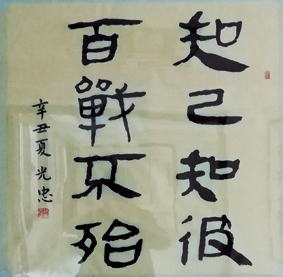 知己知彼
百戰不殆
辛丑夏 光忠